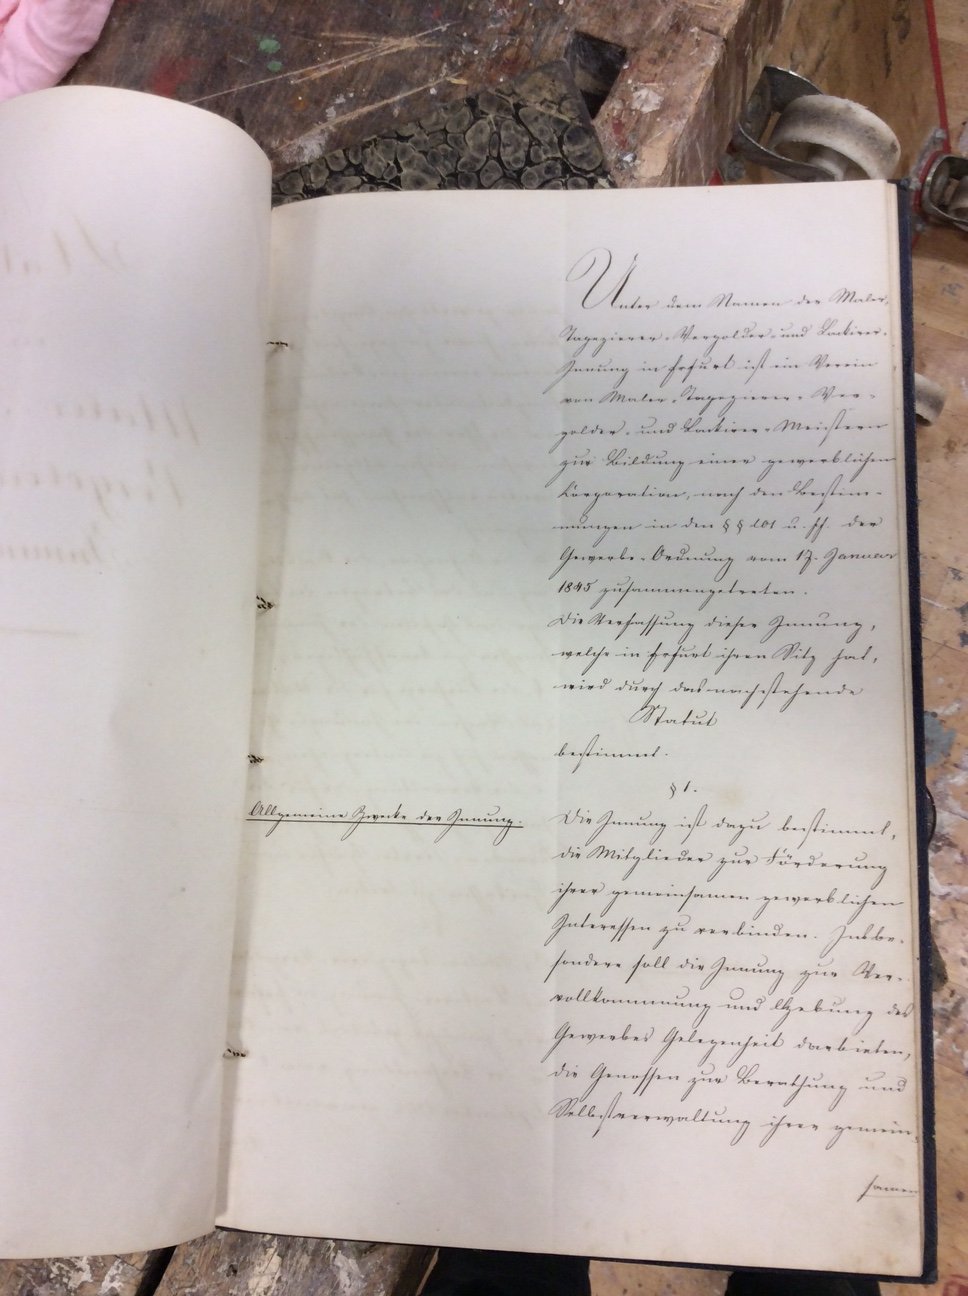 Unter dem Namen der Maler,
Tapezierer-Vergolder- und Lackirer-
Innung in Erfurt ist ein Verein
von Maler-, Tapezierer-, Ver-
golder- und Lackirer-Meistern
zur Bildung einer gewerblichen
Corporation, nach den Bestim-
mungen in den §§ 101 u. ff. der
Gewerbe-Ordnung vom 17. Januar
1845 zusammengetreten.
Die Verfassung dieser Innung,
welche in Erfurt ihren Sitz hat,
wird durch das nachstehende
Statut
bestimmt.
§ 1.
Allgemeine Zwecke der Innung.
Die Innung ist dazu bestimmt,
die Mitglieder zur Förderung
ihrer gemeinsamen gewerblichen
Interessen zu verbinden. Insbe-
sondere soll die Innung zur Ver-
vollkommnung und Hebung des
Gewerbes Gelegenheit darbieten,
die Genossen zur Berathung und
Selbstverwaltung ihrer gemein-
samen